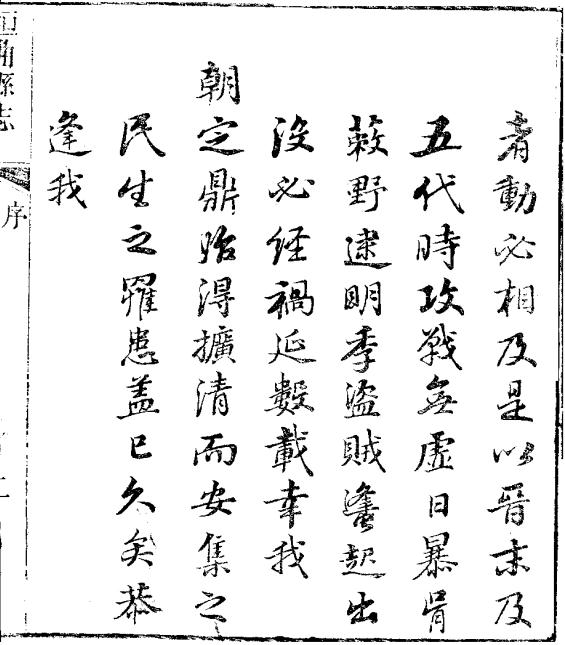 者動必相及是以晉末及
五代時攻戰無虛日暴骨
蔌野逮明季盜賊蠭起出
没必經禍延數載幸我
朝定鼎始淂擴清而安集之
民生之罹患盖已久矣恭
逢我
曲縣志
序
二